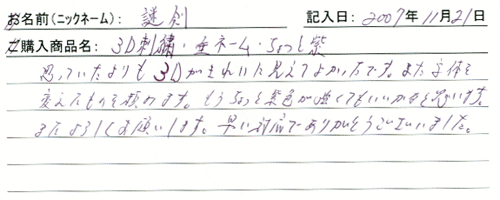 お名前(ニックネーム): 謎剣 記入日: 2007年11月21日
ご購入商品名: 3D刺繍・垂ネーム・ちょっと紫
思っていたよりも3Dがきれいに見えてよかったです。また字体を
変えたものを頼みます。もうちょっと紫色が強くてもいいかなと思います。
またよろしくお願いします。早い対応でありがとうございました。